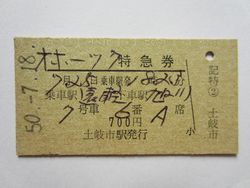 50.-7.18
オホーツク 特急券
7月25日 乗車駅発
乗車駅 遠軽 下車駅 旭川
7号車 6番 A席
700円
土岐市駅発行
小
記特② 土岐市